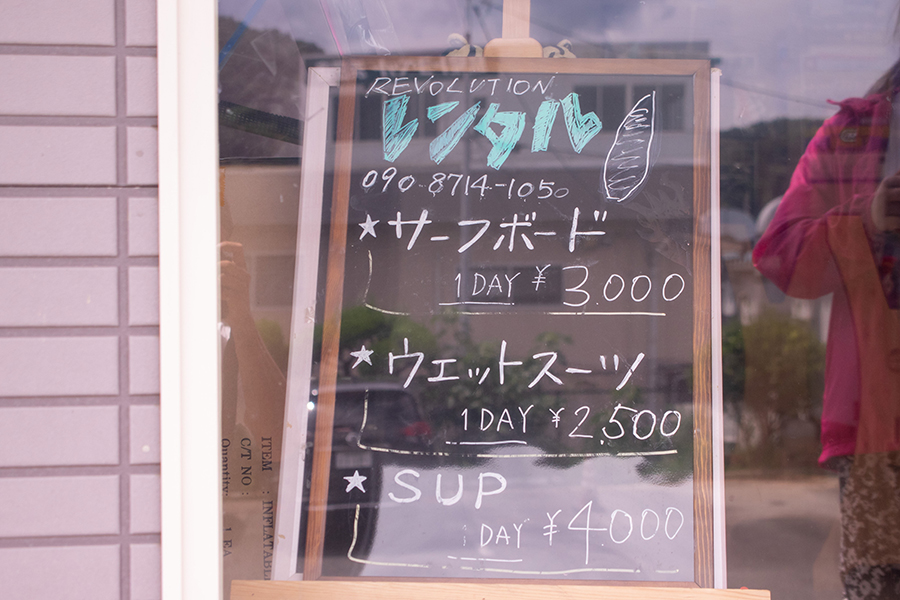 REVOLUTION
レンタル
090-8714-1050
★サーフボード
1DAY ¥3.000
★ウェットスーツ
1DAY ¥2.500
★SUP
1DAY ¥4000
ITEM : INFLATAB
C/T NO :
Quantity: 1 EA